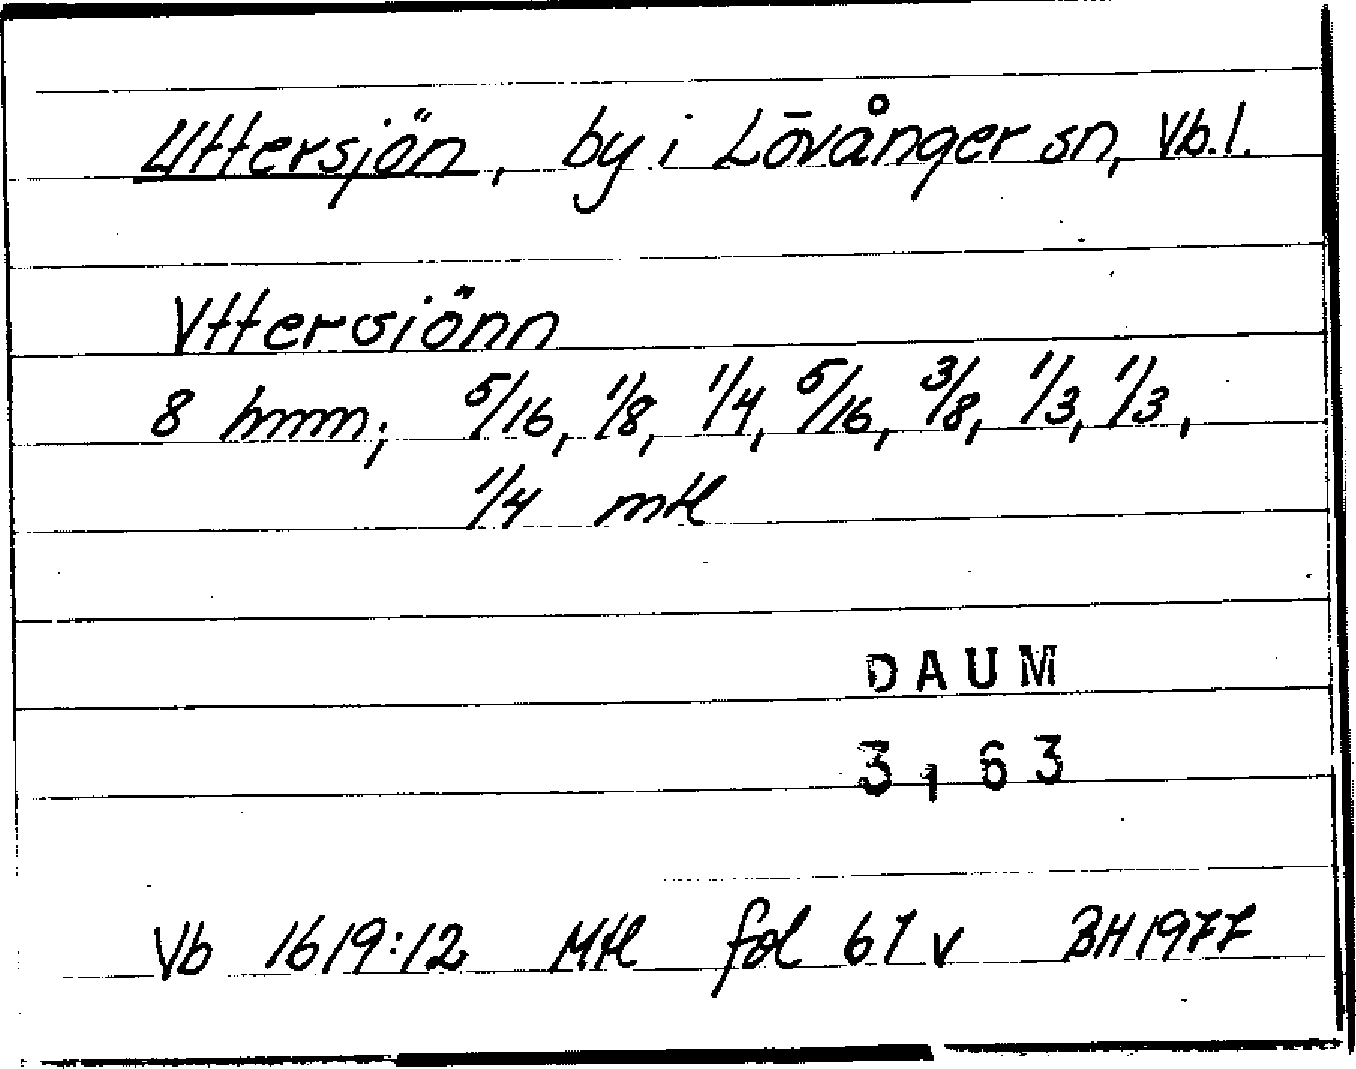 Uttersjön, by i Lövånger sn, Vb.l.
Vttersiönn
8 hmm; 5/16, 1/8, 1/4, 5/16, 3/8, 1/3, 1/3,
1/4 mtl
DAUM
3,63
Vb 1619:12 Mtl fol 67 v BH 1977